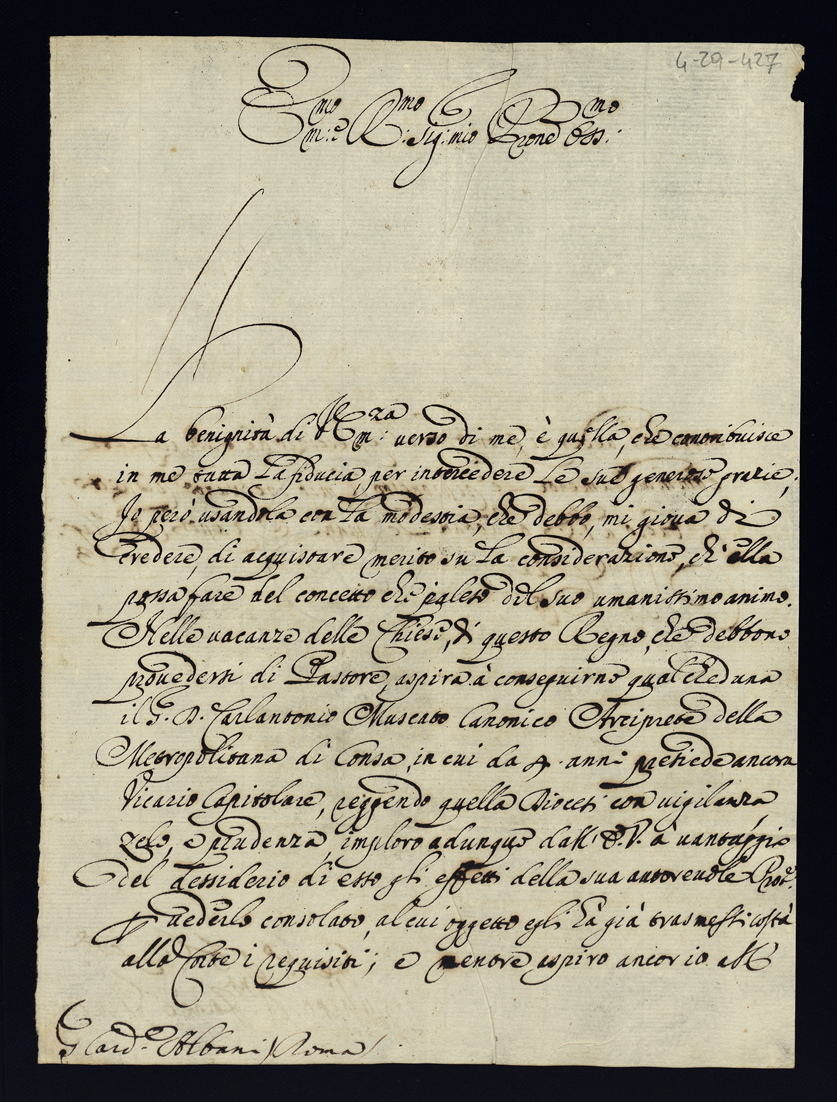 4-29-427
Emo
m:e Rmo: Sig: mio Prone Oss:mo
La benignità di V Emza: verso di me, è quella, che contribuisce
in me tutta la fiducia, per intercedere le sue generose grazie;
Io però usandola con la modestia, che debbo, mi giova di
credere, di acquistare merito su la considerazione, ch'ella
possa fare del concetto che paleso del suo umanissimo animo.
Nelle vacanze delle Chiese, di questo Regno, che debbono
provedersi di Pastore, aspira à conseguirne qualcheduna
il S. D. Carlantonio Muscato Canonico Arciprete della
Metropolitana di Consa, in cui da 4. anni presiede ancora
Vicario Capitolare, reggendo quella Diocesi con vigilanza
zelo, e prudenza, imploro adunque dall' E.V. à vantaggio
del dessiderio di esso gli effetti della sua autorevole Prot:
vederlo consolato, al cui oggetto egli hà già trasmessi costà
alla Corte i requisiti; e mentre aspiro ancor io all
S Card.e Albani / Roma /